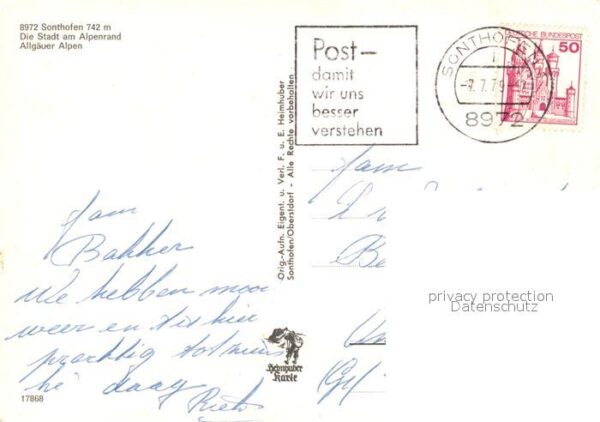 8972 Sonthofen 742 m
Die Stadt am Alpenrand
Allgäuer Alpen
Post—
damit
wir uns
besser
verstehen
SONTHOFEN
-7.7.79
8972
DEUTSCHE BUNDESPOST
50
Orig.-Aufn. Eigent. u. Verl. F. u. E. Heimhuber
Sonthofen/Oberstdorf - Alle Rechte vorbehalten
Fam
Bakker
We hebben mooi
weer en
prachtig
daag
Fam
Be
privacy protection
Datenschutz
Heimhuber
Karte
17868